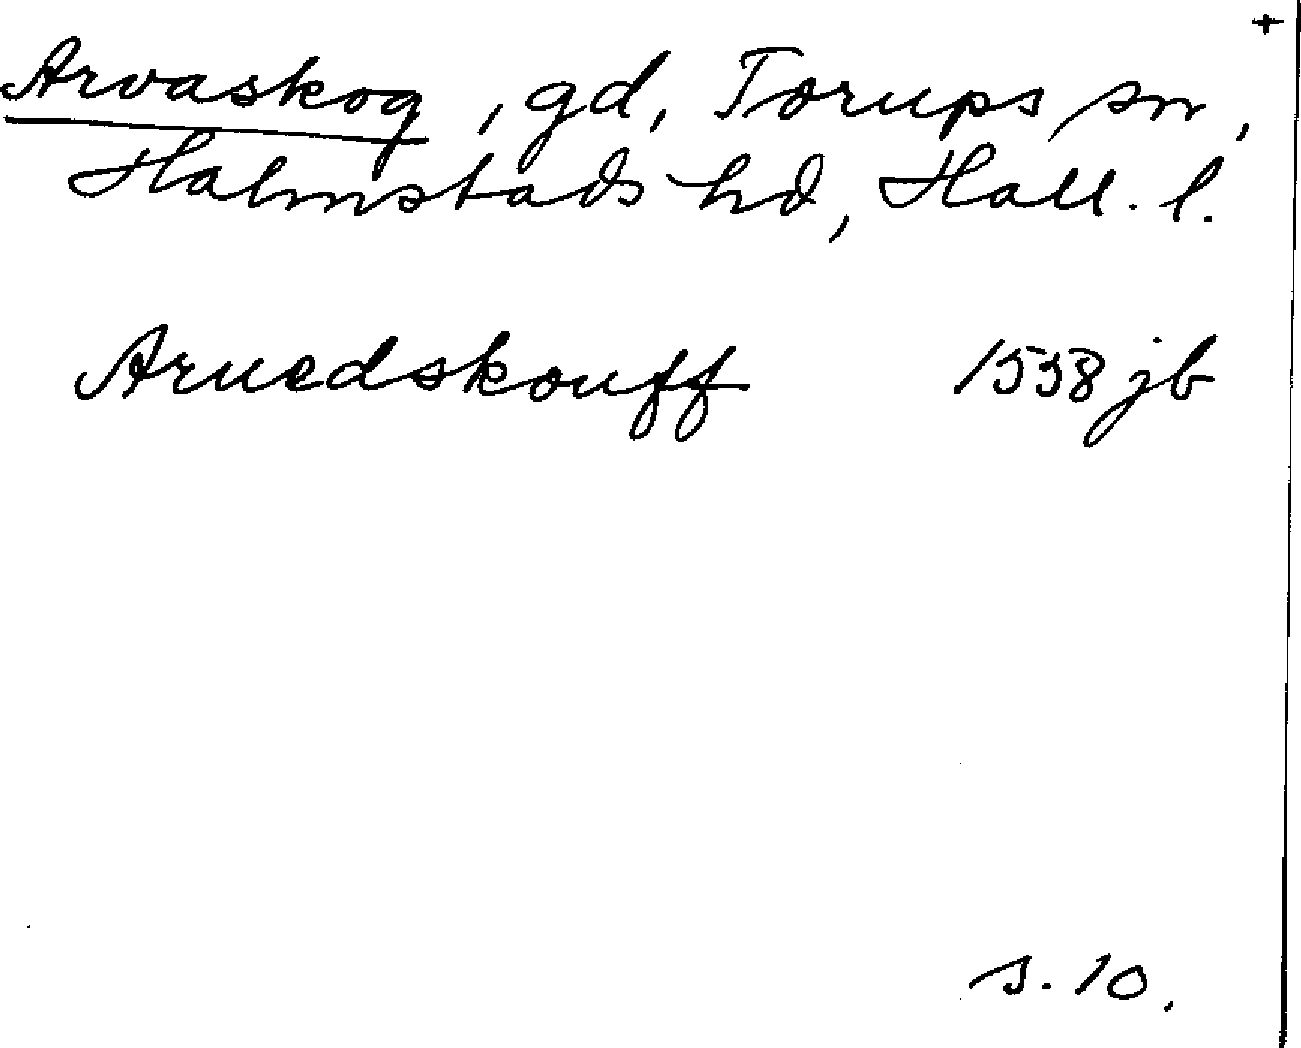 +
Arvaskog, gd, Torups sn,
Halmstads hd, Hall. l.
Aruedskouff 1538 jb
s. 10.